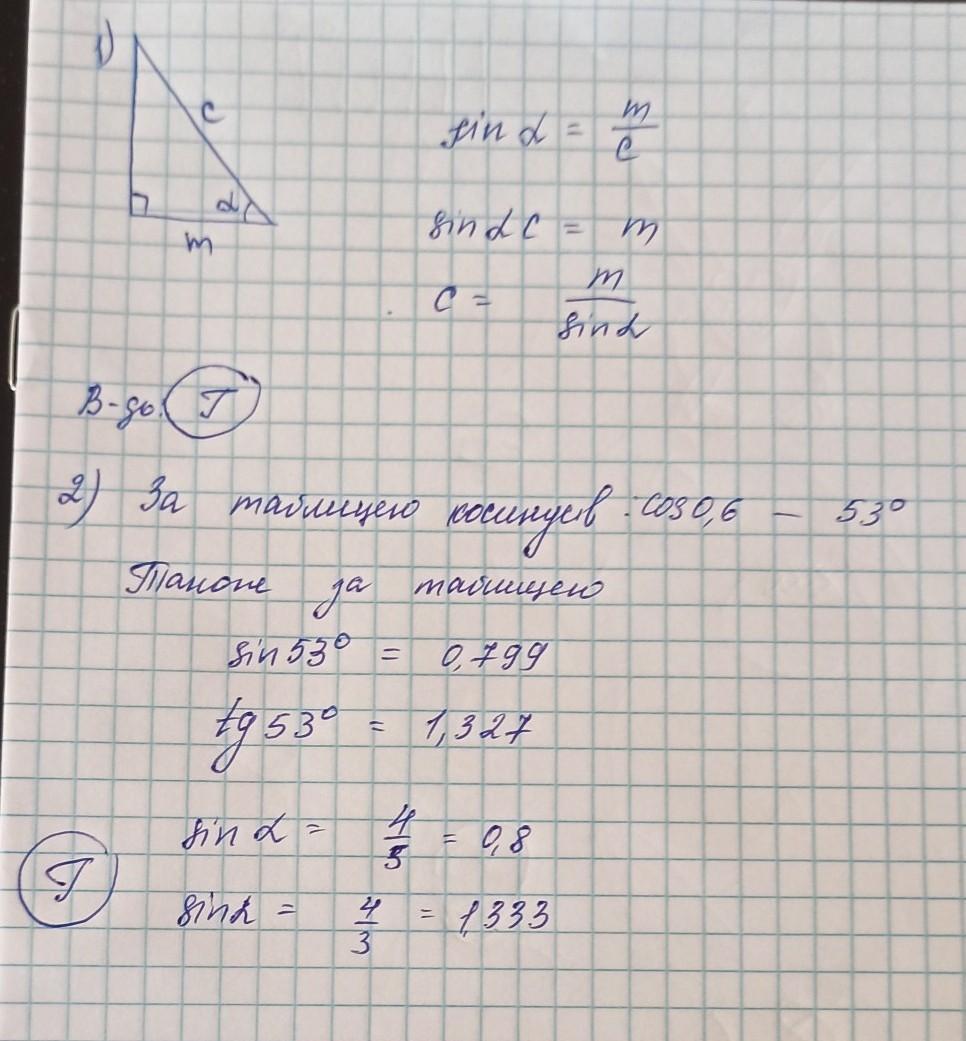 1)
c
α
m
sin α = m/c
sin α c = m
c = m/sin α
В-дь: Г
2) За таблицею косинусів: cos 0,6 — 53°
Також за таблицею
sin 53° = 0,799
tg 53° = 1,327
sin α = 4/5 = 0,8
Г
sin α = 4/3 = 1,333